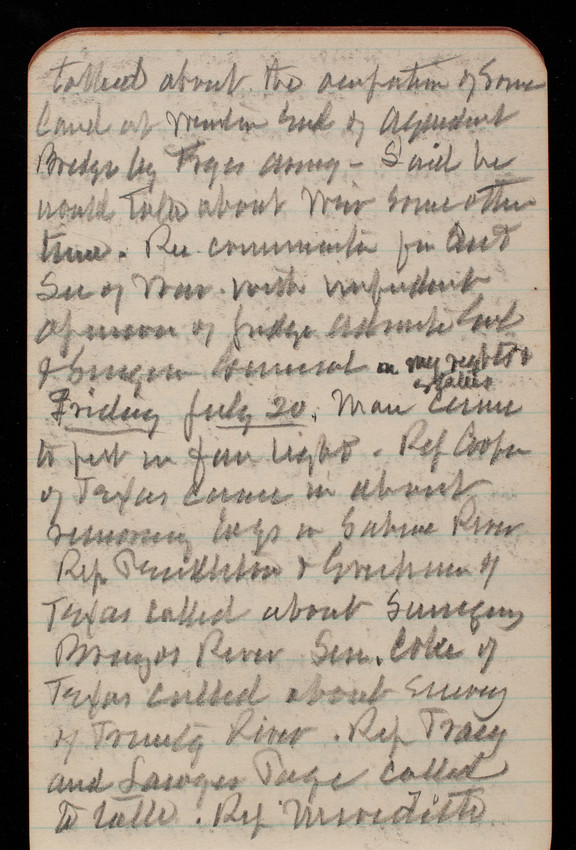 talked about the occupation of some
land at western End of Aqueduct
Bridge by Coxeys army - Said he
would talk about Weir some other
time. Rec communication from Asst
Sec of War with
opinion of Judge Advocate Genl
& Surgeon General on my rights &
status
Friday July 20. Man came
to put in fan light. Rep Cooper
of Texas came in about
removing logs in Sabine River
Rep Pendleton & Gresham of
Texas called about Surveying
Brazos River Sen. Coke of
Texas called about Survey
of Trinity River. Rep Tracy
and Lawyer Page called
to talk. Rep Meredith